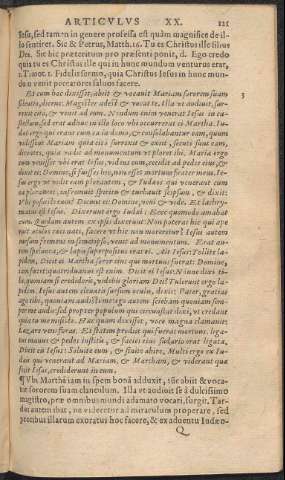 ARTICVLVS XX. 121
sese, sed tamen in genere professa est quàm magnifice de il-
lo sentiret. Sic & Petrus, Matth. 16. Tu es Christus ille filius
Dei. Sic hîc præteritum pro præsenti ponit, d. Ego credo
quia tu es Christus ille qui in hunc mundum venturus erat,
1. Timot. 1. Fidelis sermo, quia Christus Iesus in hunc mun-
dum venit peccatores saluos facere.
Et cum hoc dixisset, abiit & vocauit Mariam sororem suam 3
silentio, dicens: Magister adest & vocat te. Illa vt audiuit, sur-
rexit citò, & venit ad eum. Nondum enim venerat Iesus in ca-
stellum, sed erat adhuc in illo loco vbi occurrerat ei Martha. Iu-
dæi ergo qui erant cum ea in domo, & consolabantur eam, quum
vidissent Mariam quia citò surrexit & exiit, secuti sunt eam,
dicentes, quia vadit ad monumentum vt ploret ibi. Maria ergo
cum venisset vbi erat Iesus, videns eum, cecidit ad pedes eius, &
dixit ei: Domine, si fuisses hîc, non esset mortuus frater meus. Ie-
sus ergo vt vidit eam plorantem, & Iudæos qui venerant cum
ea plorantes, infremuit spiritu & turbauit seipsum, & dixit:
Vbi posuistis eum? Dicunt ei: Domine, veni & vide. Et lachry-
matus est Iesus. Dixerunt ergo Iudæi: Ecce quomodo amabat
eum. Quidam autem ex ipsis dixerunt: Non poterat hic qui ape-
ruit oculos cæci nati, facere vt hic non moreretur? Iesus autem
rursum fremens in semetipso, venit ad monumentum. Erat au-
tem spelunca, & lapis superpositus erat ei. Ait Iesus: Tollite la-
pidem. Dicit ei Martha soror eius qui mortuus fuerat: Domine,
iam fœtet, quatriduanus est enim. Dicit ei Iesus: Nonne dixi ti-
bi, quoniam si credideris, videbis gloriam Dei? Tulerunt ergo la-
pidem. Iesus autem eleuatis sursum oculis, dixit: Pater, gratias
ago tibi, quoniam audisti me: ego autem sciebam quoniam sem-
per me audis, sed propter populum qui circumstat dixi, vt credant
quia tu me misisti. Hæc quum dixisset, voce magna clamauit:
Lazare veni foras. Et statim prodiit qui fuerat mortuus, liga-
tus manus & pedes institis, & facies eius sudario erat ligata.
Dicit eis Iesus: Soluite eum, & sinite abire. Multi ergo ex Iu-
dæis qui venerant ad Mariam, & Martham, & viderant quæ
fecit Iesus, crediderunt in eum.
¶ Vbi Martham in spem bonâ adduxit, tùc abiit & voca-
uit sororem suam clanculum. Illa vt audiuit se à dulcissimo
magistro, præ omnibus mundi adamato vocari, surgit. Tar-
dat autem ibat, ne videretur ad miraculum properare, sed
precibus illarum exoratus hoc facere, & ex aduentu Iudæo-
Q